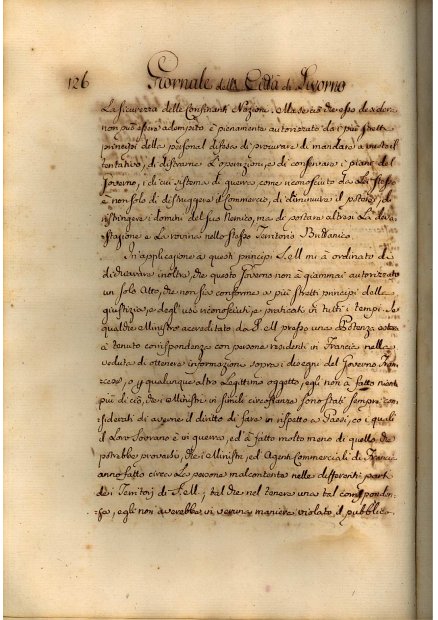 126 Giornale della Città di Livorno
La sicurezza delle Confinanti Nazioni. Ma se ciò
non può essere adempito, è pienamente autorizzato da i più stretti
principj della personal difesa di procurare di mandare a vuoto il
tentativo, di distrarne l'operazione, e di conspirare i piani del
Governo, i di cui sistema di guerra come riconosciuto da
è non solo di distruggere il Commercio, di diminuire il potere, di
ristringere i domini del suo Nemico, ma di portare altresì la deva-
stazione e la rovina nello stesso Territorio Brittanico.
In applicazione a questi principj S. M. mi à ordinato di
dichiarare inoltre, che questo Governo non à giammai autorizzato
un solo Atto, che non sia conforme a più stretti principj della
giustizia, e degl'usi riconosciuti, e praticati in tutti i tempi. Se
qualche Ministro accreditato da S. M. presso una Potenza
à tenuto corrispondenza con persone residenti in Francia nella
veduta di ottenere informazioni sopra i disegni del Governo Fran-
cese, o p qualunque altro legittimo oggetto, egli non à fatto nient
più di ciò, che i Ministri in simili circostanze sono stati sempre con-
siderati di averne il diritto di fare in rispetto a Paesi, co i quali
il loro Sovrano è in guerra, ed à fatto molto meno di quello che
potrebbe provarsi, che i Ministri, ed Agenti Commerciali di Francia
anno fatto circa le persone malcontente nelle differenti parti
dei Territorj di S. M.; tal che nel tenere una tal corrisponden-
za, egli non averebbe in veruna maniera violato il pubblico